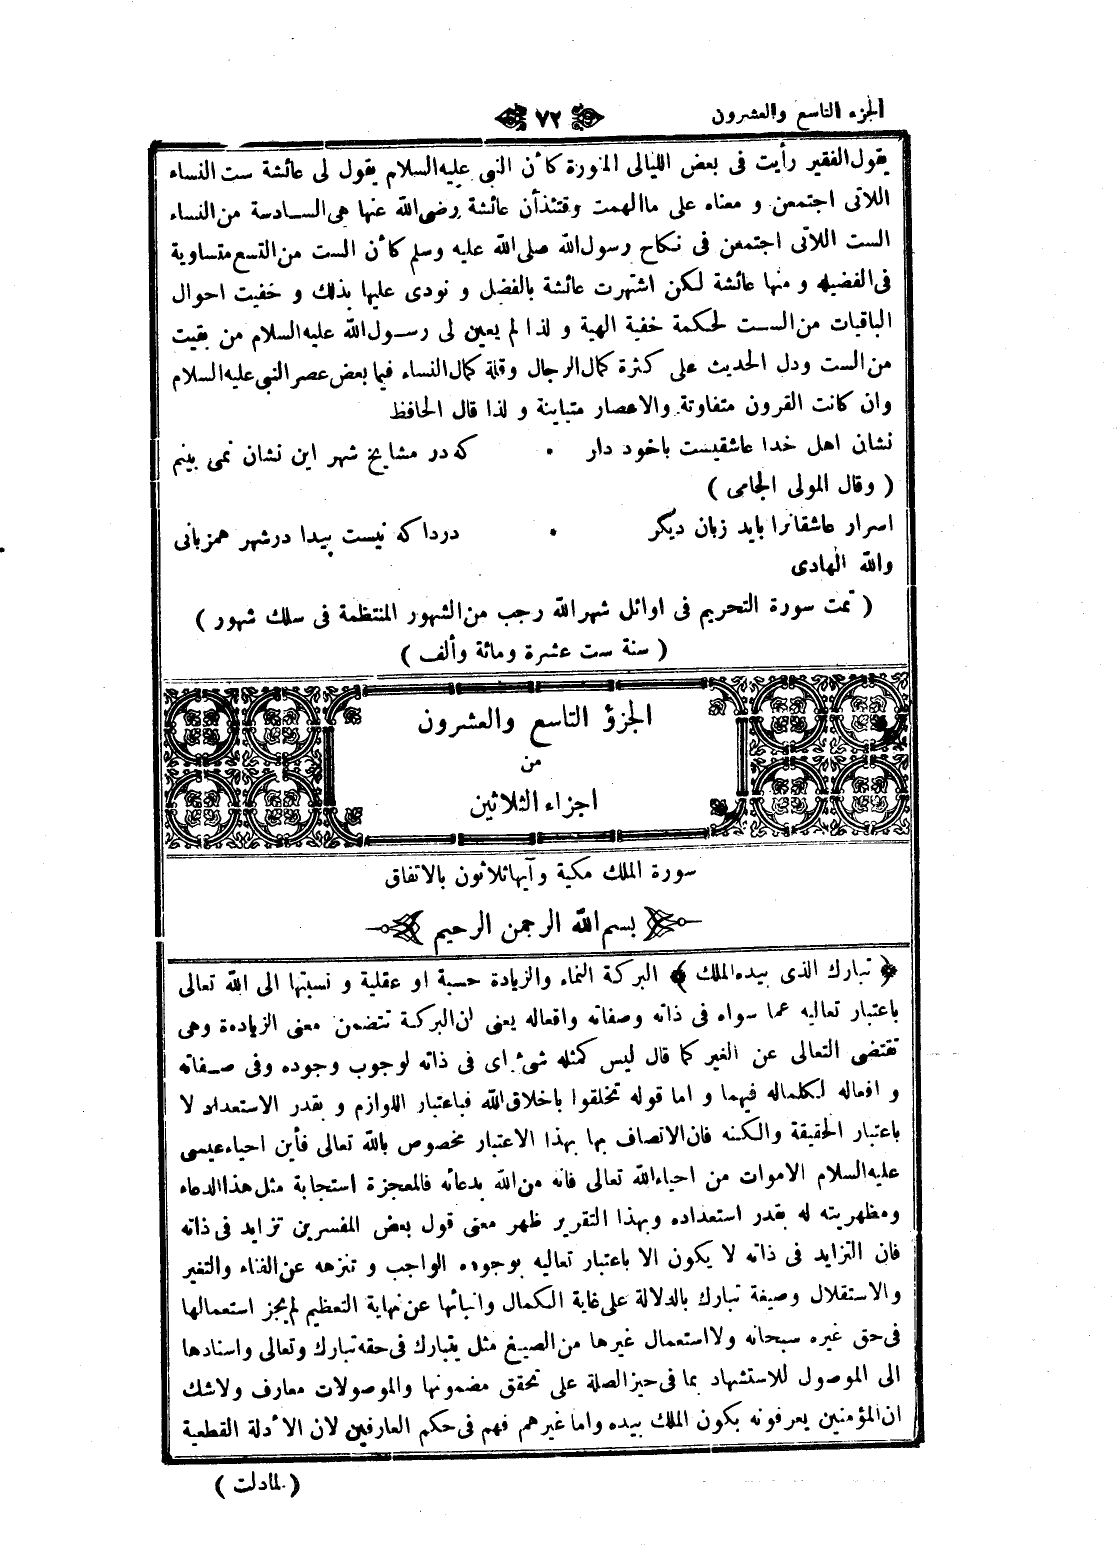 الجزء التاسع والعشرون
٧٢
يقول الفقير رأيت فى بعض الليالى المنورة كأن النبى عليه السلام يقول لى عائشة ست النساء
اللاتى اجتمعن و معناه على ما الهمت وقتئذ أن عائشة رضى الله عنها هى السادسة من النساء
الست اللاتى اجتمعن فى نكاح رسول الله صلى الله عليه وسلم كأن الست من التسع متساوية
فى الفضيله و منها عائشة لكن اشتهرت عائشة بالفضل و نودى عليها بذلك و خفيت احوال
الباقيات من الست لحكمة خفية الهية و لذا لم يعين لى رسول الله عليه السلام من بقيت
من الست ودل الحديث على كثرة كمال الرجال وقلة كمال النساء فيما بعض عصر النبى عليه السلام
وان كانت القرون متفاوتة والاعصار متباينة و لذا قال الحافظ
نشان اهل خدا عاشقيست باخود دار • كه در مشايخ شهر اين نشان نمى بينم
( وقال المولى الجامى )
اسرار عاشقانرا بايد زبان ديكر • دردا كه نيست پيدا درشهر همزبانى
والله الهادى
( تمت سورة التحريم فى اوائل شهر الله رجب من الشهور المنتظمة فى سلك شهور )
( سنة ست عشرة ومائة وألف )
الجزؤ التاسع والعشرون
من
اجزاء الثلاثين
سورة الملك مكية وآيها ثلاثون بالاتفاق
بسم الله الرحمن الرحيم
﴿ تبارك الذى بيده الملك ﴾ البركة النماء والزيادة حسية او عقلية و نسبتها الى الله تعالى
باعتبار تعاليه عما سواه فى ذاته وصفاته وافعاله يعنى ان البركة تتضمن معنى الزيادة وهى
تقتضى التعالى عن الغير كما قال ليس كمثله شئ اى فى ذاته لوجوب وجوده وفى صفاته
و افعاله لكماله فيهما و اما قوله تخلقوا باخلاق الله فباعتبار اللوازم و بقدر الاستعداد لا
باعتبار الحقيقة والكنه فان الاتصاف بها بهذا الاعتبار مخصوص بالله تعالى فأين احياء عيسى
عليه السلام الاموات من احياء الله تعالى فانه من الله بدعائه فالمعجزة استجابة مثل هذا الدعاء
ومظهريته له بقدر استعداده وبهذا التقرير ظهر معنى قول بعض المفسرين تزايد فى ذاته
فان التزايد فى ذاته لا يكون الا باعتبار تعاليه بوجوده الواجب و تنزهه عن الفناء والتغير
والاستقلال وصيغة تبارك بالدلالة على غاية الكمال وانبائها عن نهاية التعظيم لم يجز استعمالها
فى حق غيره سبحانه ولا استعمال غيرها من الصيغ مثل يتبارك فى حقه تبارك وتعالى واسنادها
الى الموصول للاستشهاد بما فى حيز الصلة على تحقق مضمونها والموصولات معارف ولاشك
ان المؤمنين يعرفونه بكون الملك بيده واما غيرهم فهم فى حكم العارفين لان الأدلة القطعية
( لمادلت )